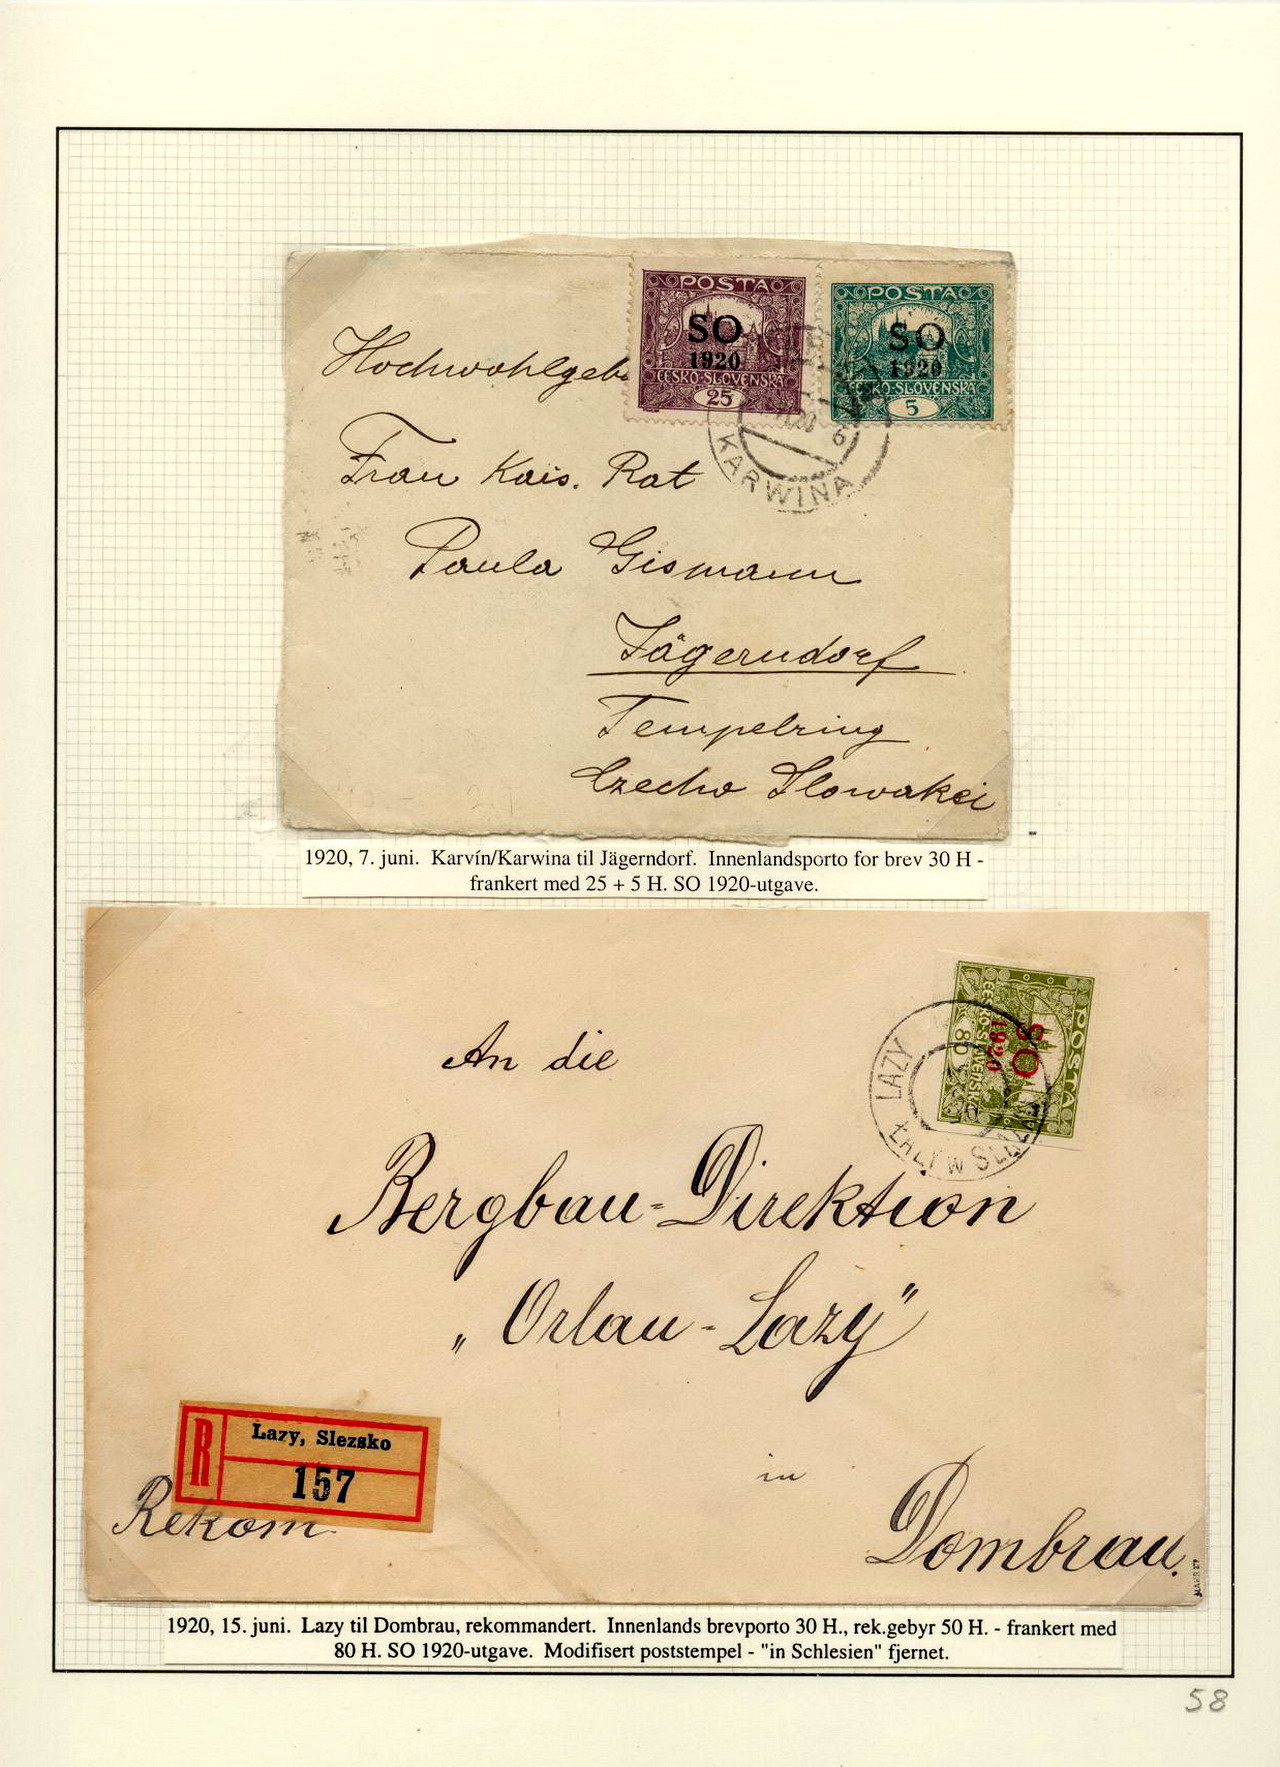 POSTA
SO
1920
ČESKO-SLOVENSKÁ
25
POSTA
SO
1920
ČESKO-SLOVENSKÁ
5
KARWINA
Hochwohlgeb
Frau Kais. Rat
Paula Gismann
Jägerndorf
Tempelring
Czecho Slowakei
1920, 7. juni. Karvín/Karwina til Jägerndorf. Innenlandsporto for brev 30 H -
frankert med 25 + 5 H. SO 1920-utgave.
POSTA
SO
1920
ČESKO-SLOVENSKÁ
80
LAZY
ŁAZY W
An die
Bergbau-Direktion
„Orlau-Lazy"
in
Dombrau.
R
Lazy, Slezsko
157
Rekom
1920, 15. juni. Lazy til Dombrau, rekommandert. Innenlands brevporto 30 H., rek.gebyr 50 H. - frankert med
80 H. SO 1920-utgave. Modifisert poststempel - "in Schlesien" fjernet.
58